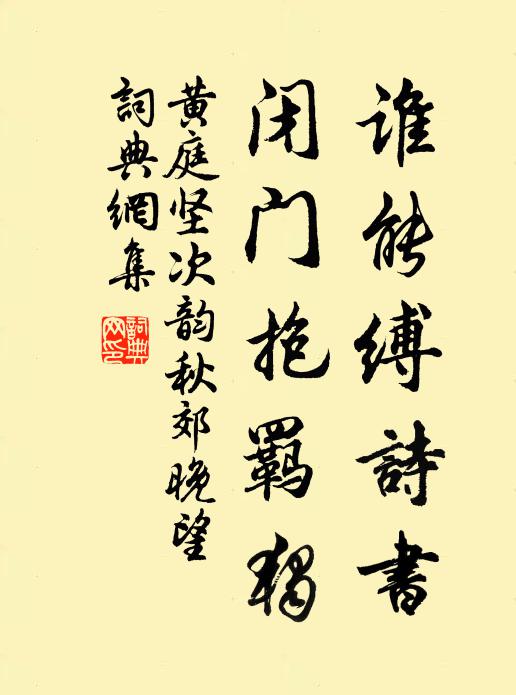 谁能缚詩書
闭门抱羁獨
黄庭坚次韵秋郊晚望
詞典網集
詞典網印